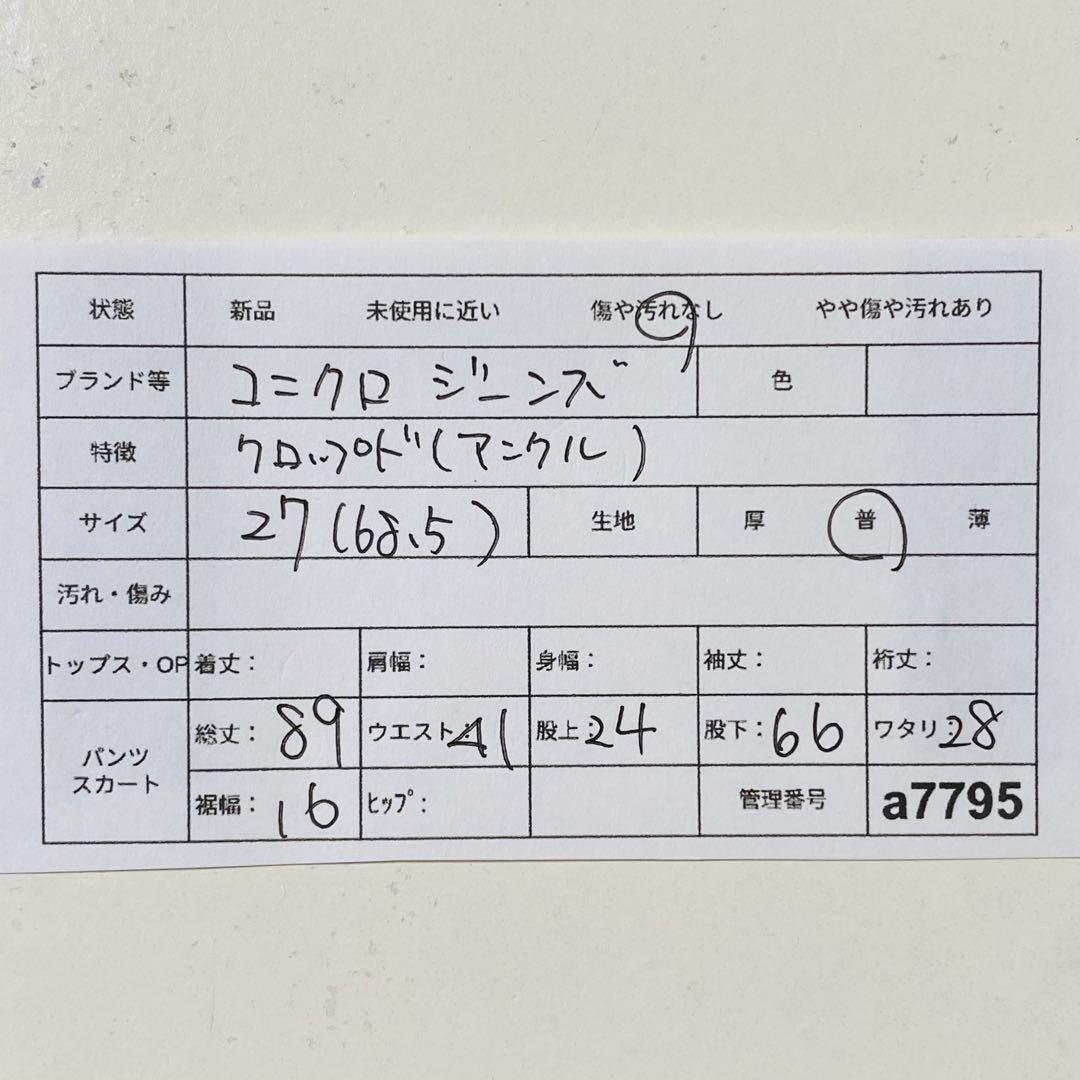 状態 新品 未使用に近い 傷や汚れなし やや傷や汚れあり
ブランド等 ユニクロ ジーンズ 色
特徴 クロップド(アンクル)
サイズ 27(68.5) 生地 厚 普 薄
汚れ・傷み
トップス・OP 着丈: 肩幅: 身幅: 袖丈: 裄丈:
パンツ スカート 総丈: 89 ウエスト: 41 股上: 24 股下: 66 ワタリ: 28
裾幅: 16 ヒップ: 管理番号 a7795